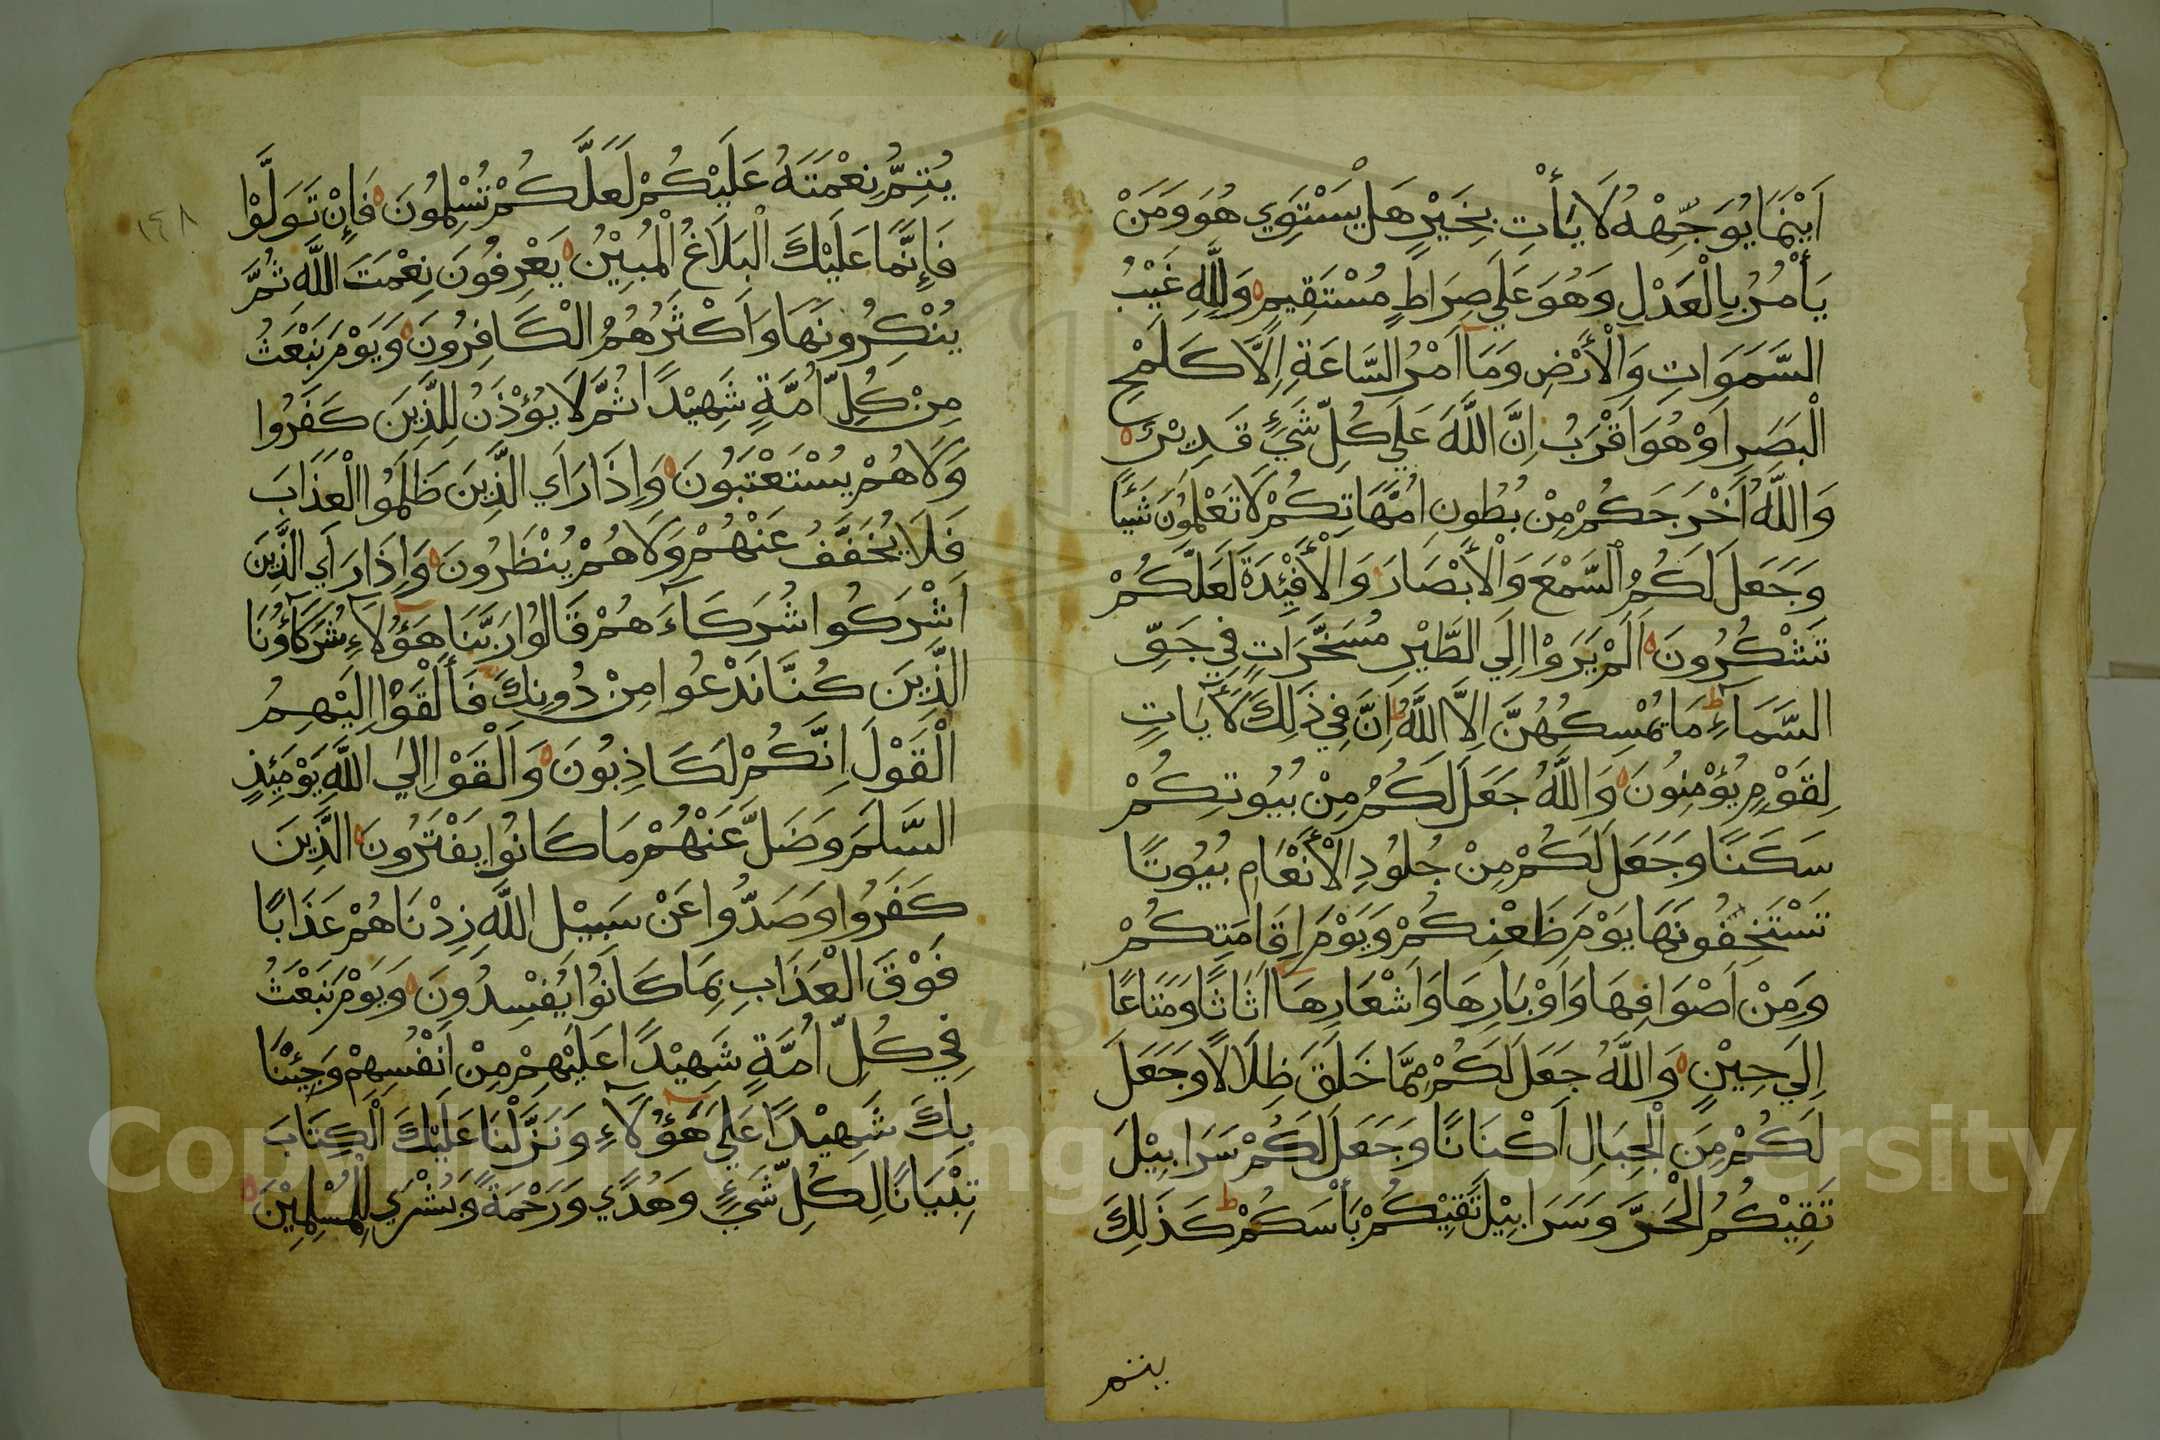 اَيْنَمَا يُوَجِّهْهُ لَا يَأْتِ بِخَيْرٍ هَلْ يَسْتَوِي هُوَ وَمَنْ
يَأْمُرُ بِالْعَدْلِ وَهُوَ عَلَي صِرَاطٍ مُسْتَقِيمٍ وَلِلَّهِ غَيْبُ
السَّمَوَاتِ وَالْأَرْضِ وَمَا اَمْرُ السَّاعَةِ اِلَّا كَلَمْحِ
الْبَصَرِ اَوْ هُوَ اَقْرَبُ اِنَّ اللَّهَ عَلَي كُلِّ شَيْءٍ قَدِيْرٌ
وَاللَّهُ اَخْرَجَكُمْ مِنْ بُطُونِ اُمَّهَاتِكُمْ لَا تَعْلَمُونَ شَيْئًا
وَجَعَلَ لَكُمُ السَّمْعَ وَالْأَبْصَارَ وَالْأَفْئِدَةَ لَعَلَّكُمْ
تَشْكُرُونَ اَلَمْ يَرَوْا اِلَي الطَّيْرِ مُسَخَّرَاتٍ فِي جَوِّ
السَّمَاءِ ط مَا يُمْسِكُهُنَّ اِلَّا اللَّهُ ط اِنَّ فِي ذَلِكَ لَأٓيَاتٍ
لِقَوْمٍ يُؤْمِنُونَ وَاللَّهُ جَعَلَ لَكُمْ مِنْ بُيُوتِكُمْ
سَكَنًا وَجَعَلَ لَكُمْ مِنْ جُلُودِ الْأَنْعَامِ بُيُوتًا
تَسْتَخِفُّونَهَا يَوْمَ ظَعْنِكُمْ وَيَوْمَ اِقَامَتِكُمْ
وَمِنْ اَصْوَافِهَا وَاَوْبَارِهَا وَاَشْعَارِهَا اَثَاثًا وَمَتَاعًا
اِلَي حِيْنٍ وَاللَّهُ جَعَلَ لَكُمْ مِمَّا خَلَقَ ظِلَالًا وَجَعَلَ
لَكُمْ مِنَ الْجِبَالِ اَكْنَانًا وَجَعَلَ لَكُمْ سَرَابِيْلَ
تَقِيْكُمُ الْحَرَّ وَسَرَابِيْلَ تَقِيْكُمْ بَأْسَكُمْ ط كَذَلِكَ
يتم
١٤٨
يُتِمُّ نِعْمَتَهُ عَلَيْكُمْ لَعَلَّكُمْ تُسْلِمُونَ فَاِنْ تَوَلَّوْا
فَاِنَّمَا عَلَيْكَ الْبَلَاغُ الْمُبِيْنُ يَعْرِفُونَ نِعْمَتَ اللَّهِ ثُمَّ
يُنْكِرُونَهَا وَاَكْثَرُهُمُ الْكَافِرُونَ وَيَوْمَ نَبْعَثُ
مِنْ كُلِّ اُمَّةٍ شَهِيْدًا ثُمَّ لَا يُؤْذَنُ لِلَّذِينَ كَفَرُوا
وَلَا هُمْ يُسْتَعْتَبُونَ وَاِذَا رَاَي الَّذِينَ ظَلَمُوا الْعَذَابَ
فَلَا يُخَفَّفُ عَنْهُمْ وَلَا هُمْ يُنْظَرُونَ وَاِذَا رَاَي الَّذِينَ
اَشْرَكُوا شُرَكَآءَ هُمْ قَالُوا رَبَّنَا هَؤُلَآءِ شُرَكَآؤُنَا
الَّذِينَ كُنَّا نَدْعُوا مِنْ دُونِكَ فَأَلْقَوْا اِلَيْهِمُ
الْقَوْلَ اِنَّكُمْ لَكَاذِبُونَ وَاَلْقَوْا اِلَي اللَّهِ يَوْمَئِذٍ
السَّلَمَ وَضَلَّ عَنْهُمْ مَا كَانُوا يَفْتَرُونَ الَّذِينَ
كَفَرُوا وَصَدُّوا عَنْ سَبِيْلِ اللَّهِ زِدْنَاهُمْ عَذَابًا
فَوْقَ الْعَذَابِ بِمَا كَانُوا يُفْسِدُونَ وَيَوْمَ نَبْعَثُ
فِي كُلِّ اُمَّةٍ شَهِيْدًا عَلَيْهِمْ مِنْ اَنْفُسِهِمْ وَجِئْنَا
بِكَ شَهِيْدًا عَلَي هَؤُلَآءِ وَنَزَّلْنَا عَلَيْكَ الْكِتَابَ
تِبْيَانًا لِكُلِّ شَيْءٍ وَهُدًي وَرَحْمَةً وَبُشْرَي لِلْمُسْلِمِيْنَ
Copyright © King Saud University